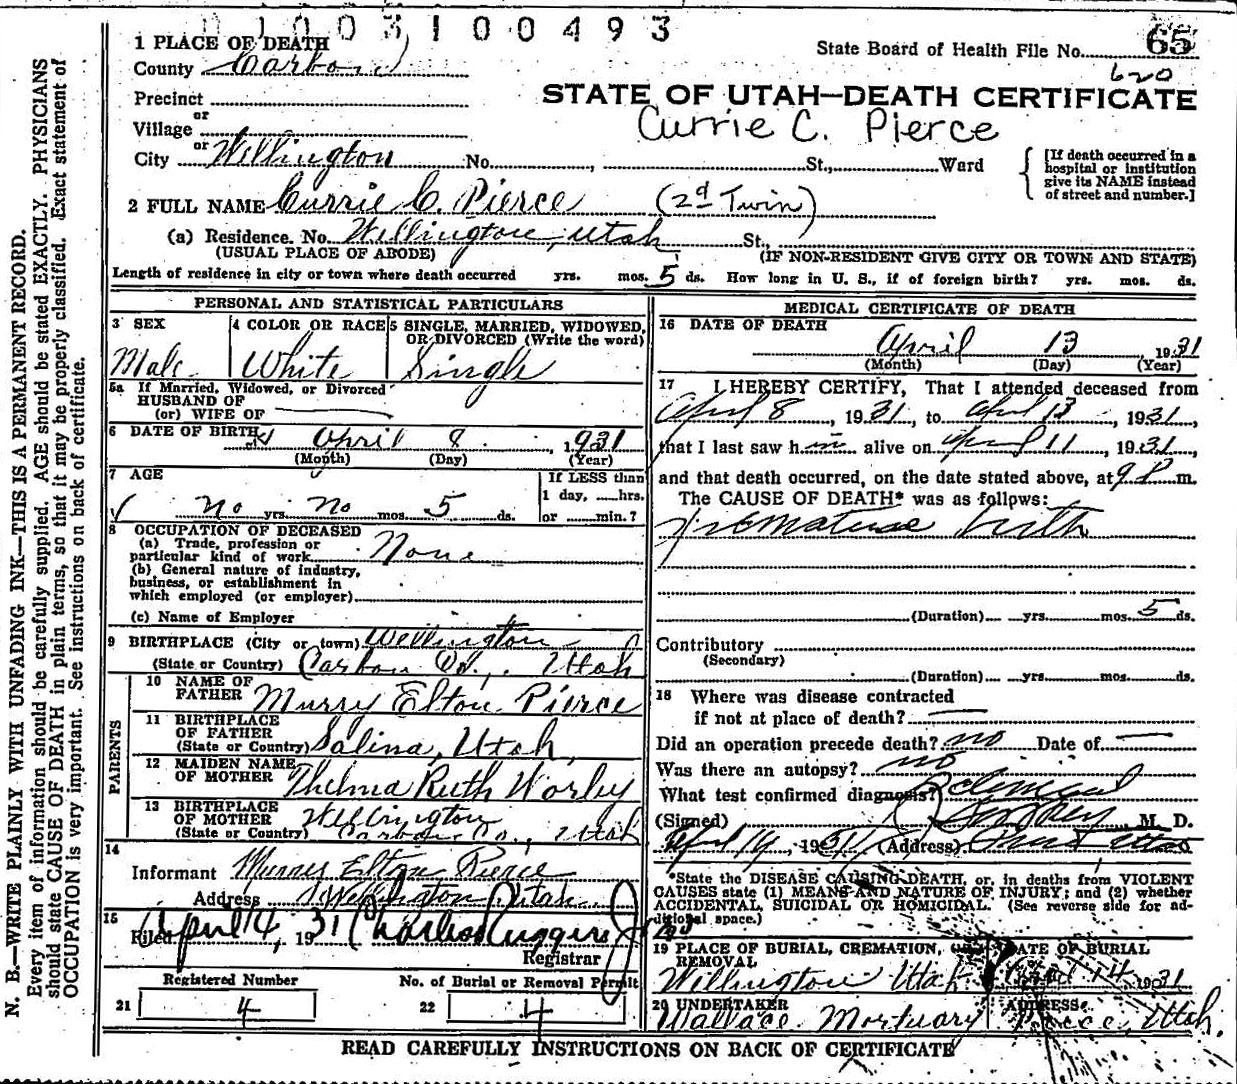 0 1 0 0 3 1 0 0 4 9 3
1 PLACE OF DEATH
State Board of Health File No. 65
County Carbon
620
Precinct
STATE OF UTAH—DEATH CERTIFICATE
or
Village
Currie C. Pierce
or
City Wellington No. , St., Ward
[If death occurred in a hospital or institution give its NAME instead of street and number.]
2 FULL NAME Currie C. Pierce (2d Twin)
(a) Residence. No. Wellington, Utah St.,
(USUAL PLACE OF ABODE) (IF NON-RESIDENT GIVE CITY OR TOWN AND STATE)
Length of residence in city or town where death occurred yrs. mos. 5 ds. How long in U. S., if of foreign birth? yrs. mos. ds.
PERSONAL AND STATISTICAL PARTICULARS
3 SEX
Male
4 COLOR OR RACE
White
5 SINGLE, MARRIED, WIDOWED,
OR DIVORCED (Write the word)
Single
5a If Married, Widowed, or Divorced
HUSBAND OF
(or) WIFE OF
6 DATE OF BIRTH April 8, 1931
(Month) (Day) (Year)
7 AGE
If LESS than
1 day, hrs.
No yrs. No mos. 5 ds. or min.?
8 OCCUPATION OF DECEASED
(a) Trade, profession or
particular kind of work None
(b) General nature of industry,
business, or establishment in
which employed (or employer)
(c) Name of Employer
9 BIRTHPLACE (City or town) Wellington
(State or Country) Carbon Co., Utah
PARENTS
10 NAME OF
FATHER Murry Elton Pierce
11 BIRTHPLACE
OF FATHER
(State or Country) Salina, Utah,
12 MAIDEN NAME
OF MOTHER Thelma Ruth Worley
13 BIRTHPLACE
OF MOTHER Wellington
(State or Country) Carbon Co., Utah
14
Informant Murry Elton Pierce
Address Wellington, Utah
15
Filed April 14, 1931 Charles Ruggeri Jr
Registrar
Registered Number No. of Burial or Removal Permit
21 4 22 4
MEDICAL CERTIFICATE OF DEATH
16 DATE OF DEATH
April 13 1931
(Month) (Day) (Year)
17 I HEREBY CERTIFY, That I attended deceased from
April 8, 1931, to April 13, 1931,
that I last saw him alive on April 11, 1931,
and that death occurred, on the date stated above, at 9 P. m.
The CAUSE OF DEATH* was as follows:
Premature birth
(Duration) yrs. mos. 5 ds.
Contributory
(Secondary)
(Duration) yrs. mos. ds.
18 Where was disease contracted
if not at place of death?
Did an operation precede death? no Date of
Was there an autopsy? no
What test confirmed diagnosis?
(Signed) M. D.
April 14, 1931 (Address)
*State the DISEASE CAUSING DEATH, or, in deaths from VIOLENT
CAUSES state (1) MEANS AND NATURE OF INJURY; and (2) whether
ACCIDENTAL, SUICIDAL OR HOMICIDAL. (See reverse side for ad-
ditional space.)
19 PLACE OF BURIAL, CREMATION, OR
REMOVAL
Wellington Utah
DATE OF BURIAL
April 14 1931
20 UNDERTAKER
Wallace Mortuary
ADDRESS
Price, Utah.
READ CAREFULLY INSTRUCTIONS ON BACK OF CERTIFICATE
N. B.—WRITE PLAINLY WITH UNFADING INK—THIS IS A PERMANENT RECORD.
Every item of information should be carefully supplied. AGE should be stated EXACTLY. PHYSICIANS
should state CAUSE OF DEATH in plain terms, so that it may be properly classified. Exact statement of
OCCUPATION is very important. See instructions on back of certificate.